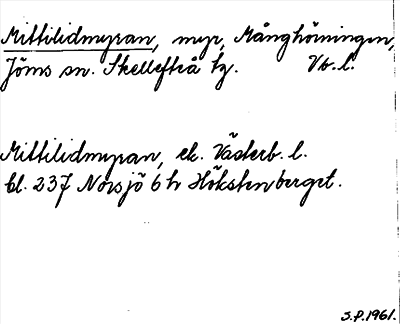 Mittilidmyran, myr, Månghörningen,
Jörns sn. Skellefteå tg. Vb. l.
Mittilidmyran, ek. Västerb. l.
bl. 237 Norsjö 6 h Hökstenberget.
S.P. 1961.